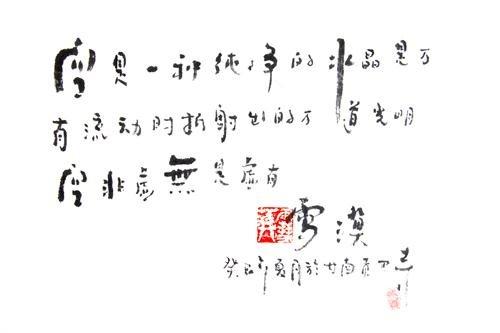 空是一种纯净的水晶是万
有流动时折射出的万道光明
空非虚無是虚有
雪漠
癸巳年夏月於甘南